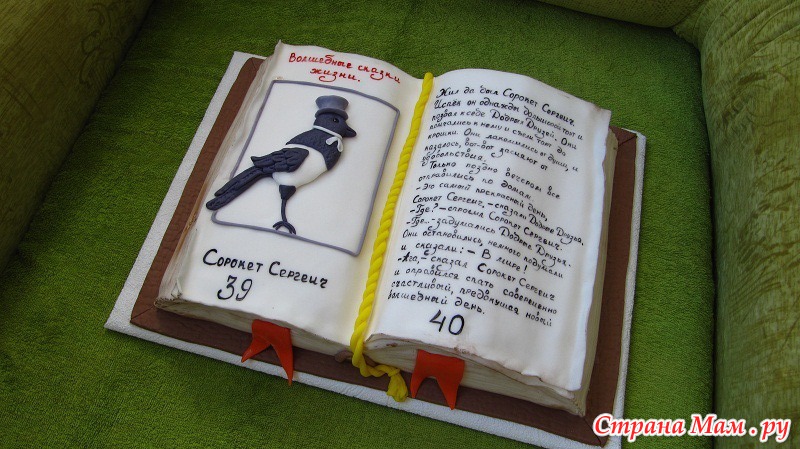 Волшебные сказки
жизни.
Сорокет Сергеич
39
Жил да был Сорокет Сергеич.
Испёк он однажды большой торт и
позвал к себе Добрых Друзей. Они
примчались к нему и съели торт до
крошки. Они лакомились от души, и
казалось, вот-вот засияют от
удовольствия.
Только поздно вечером все
отправились по домам.
-Это самый прекрасный день,
Сорокет Сергеич, - сказали Добрые Друзья.
-Где? - спросил Сорокет Сергеич.
-Где.. - задумались Добрые Друзья.
Они остановились, немного подумали
и сказали: - В мире!
-Ага, - сказал Сорокет Сергеич
и отправился спать совершенно
счастливый, предвкушая новый
волшебный день.
40
Страна Мам.ру